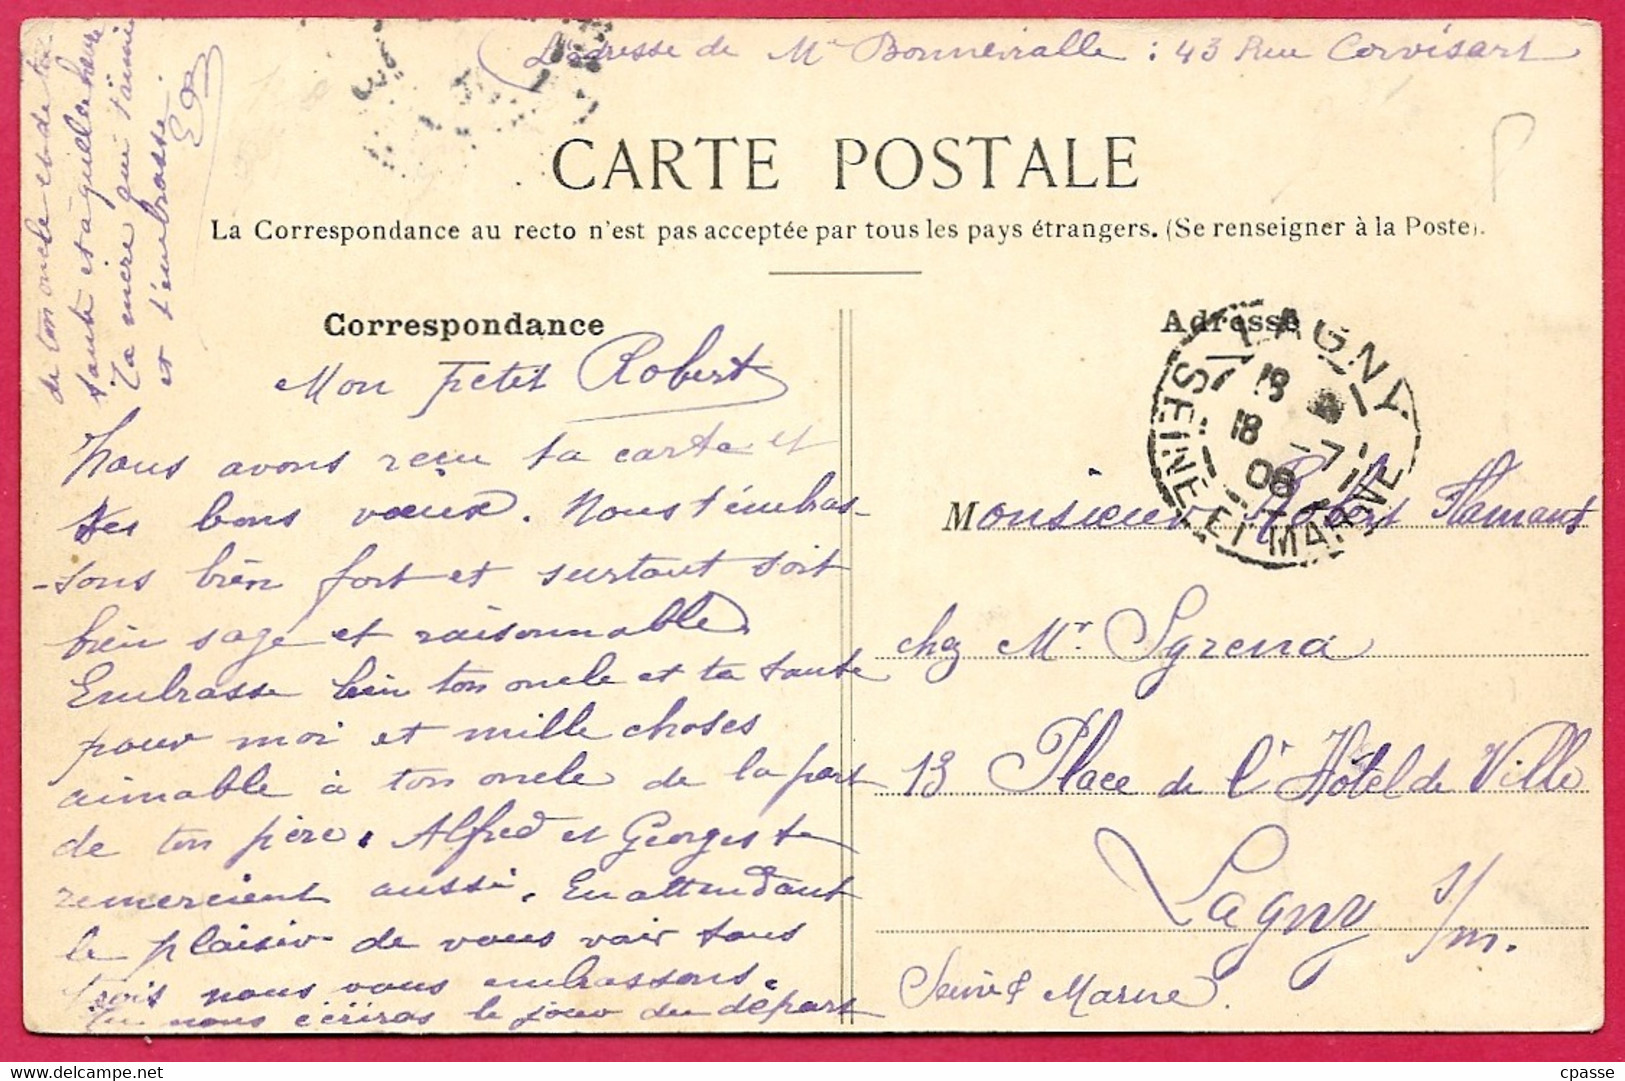 (L'adresse de Mr Bonnevialle : 43 Rue Corvisart
CARTE POSTALE
La Correspondance au recto n'est pas acceptée par tous les pays étrangers. (Se renseigner à la Poste).
Correspondance
Mon petit Robert
Nous avons reçu ta carte et
tes bons vœux. Nous t'embras-
-sons bien fort et surtout soit
bien sage et raisonnable.
Embrasse bien ton oncle et ta tante
pour moi et mille choses
aimable à ton oncle de la part
de ton père. Alfred et Georges te
remercient aussi. En attendant
le plaisir de vous voir tous
trois nous vous embrassons.
Tu nous écriras le jour du départ
de ton oncle et de ta
tante et à quelle heure
Ta mère qui t'aime
et t'embrasse
Adresse
LAGNY
18
18 -7
08
SEINE ET MARNE
Monsieur Robert Hamant
chez Mr. Sgrena
13 Place de l'Hôtel de Ville
Lagny s/m.
Seine & Marne.
cpasse